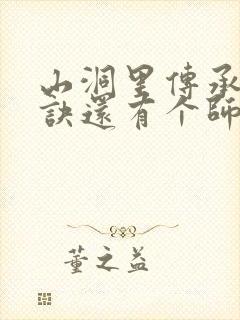 山洞里傳承
訣還有个師
董之益